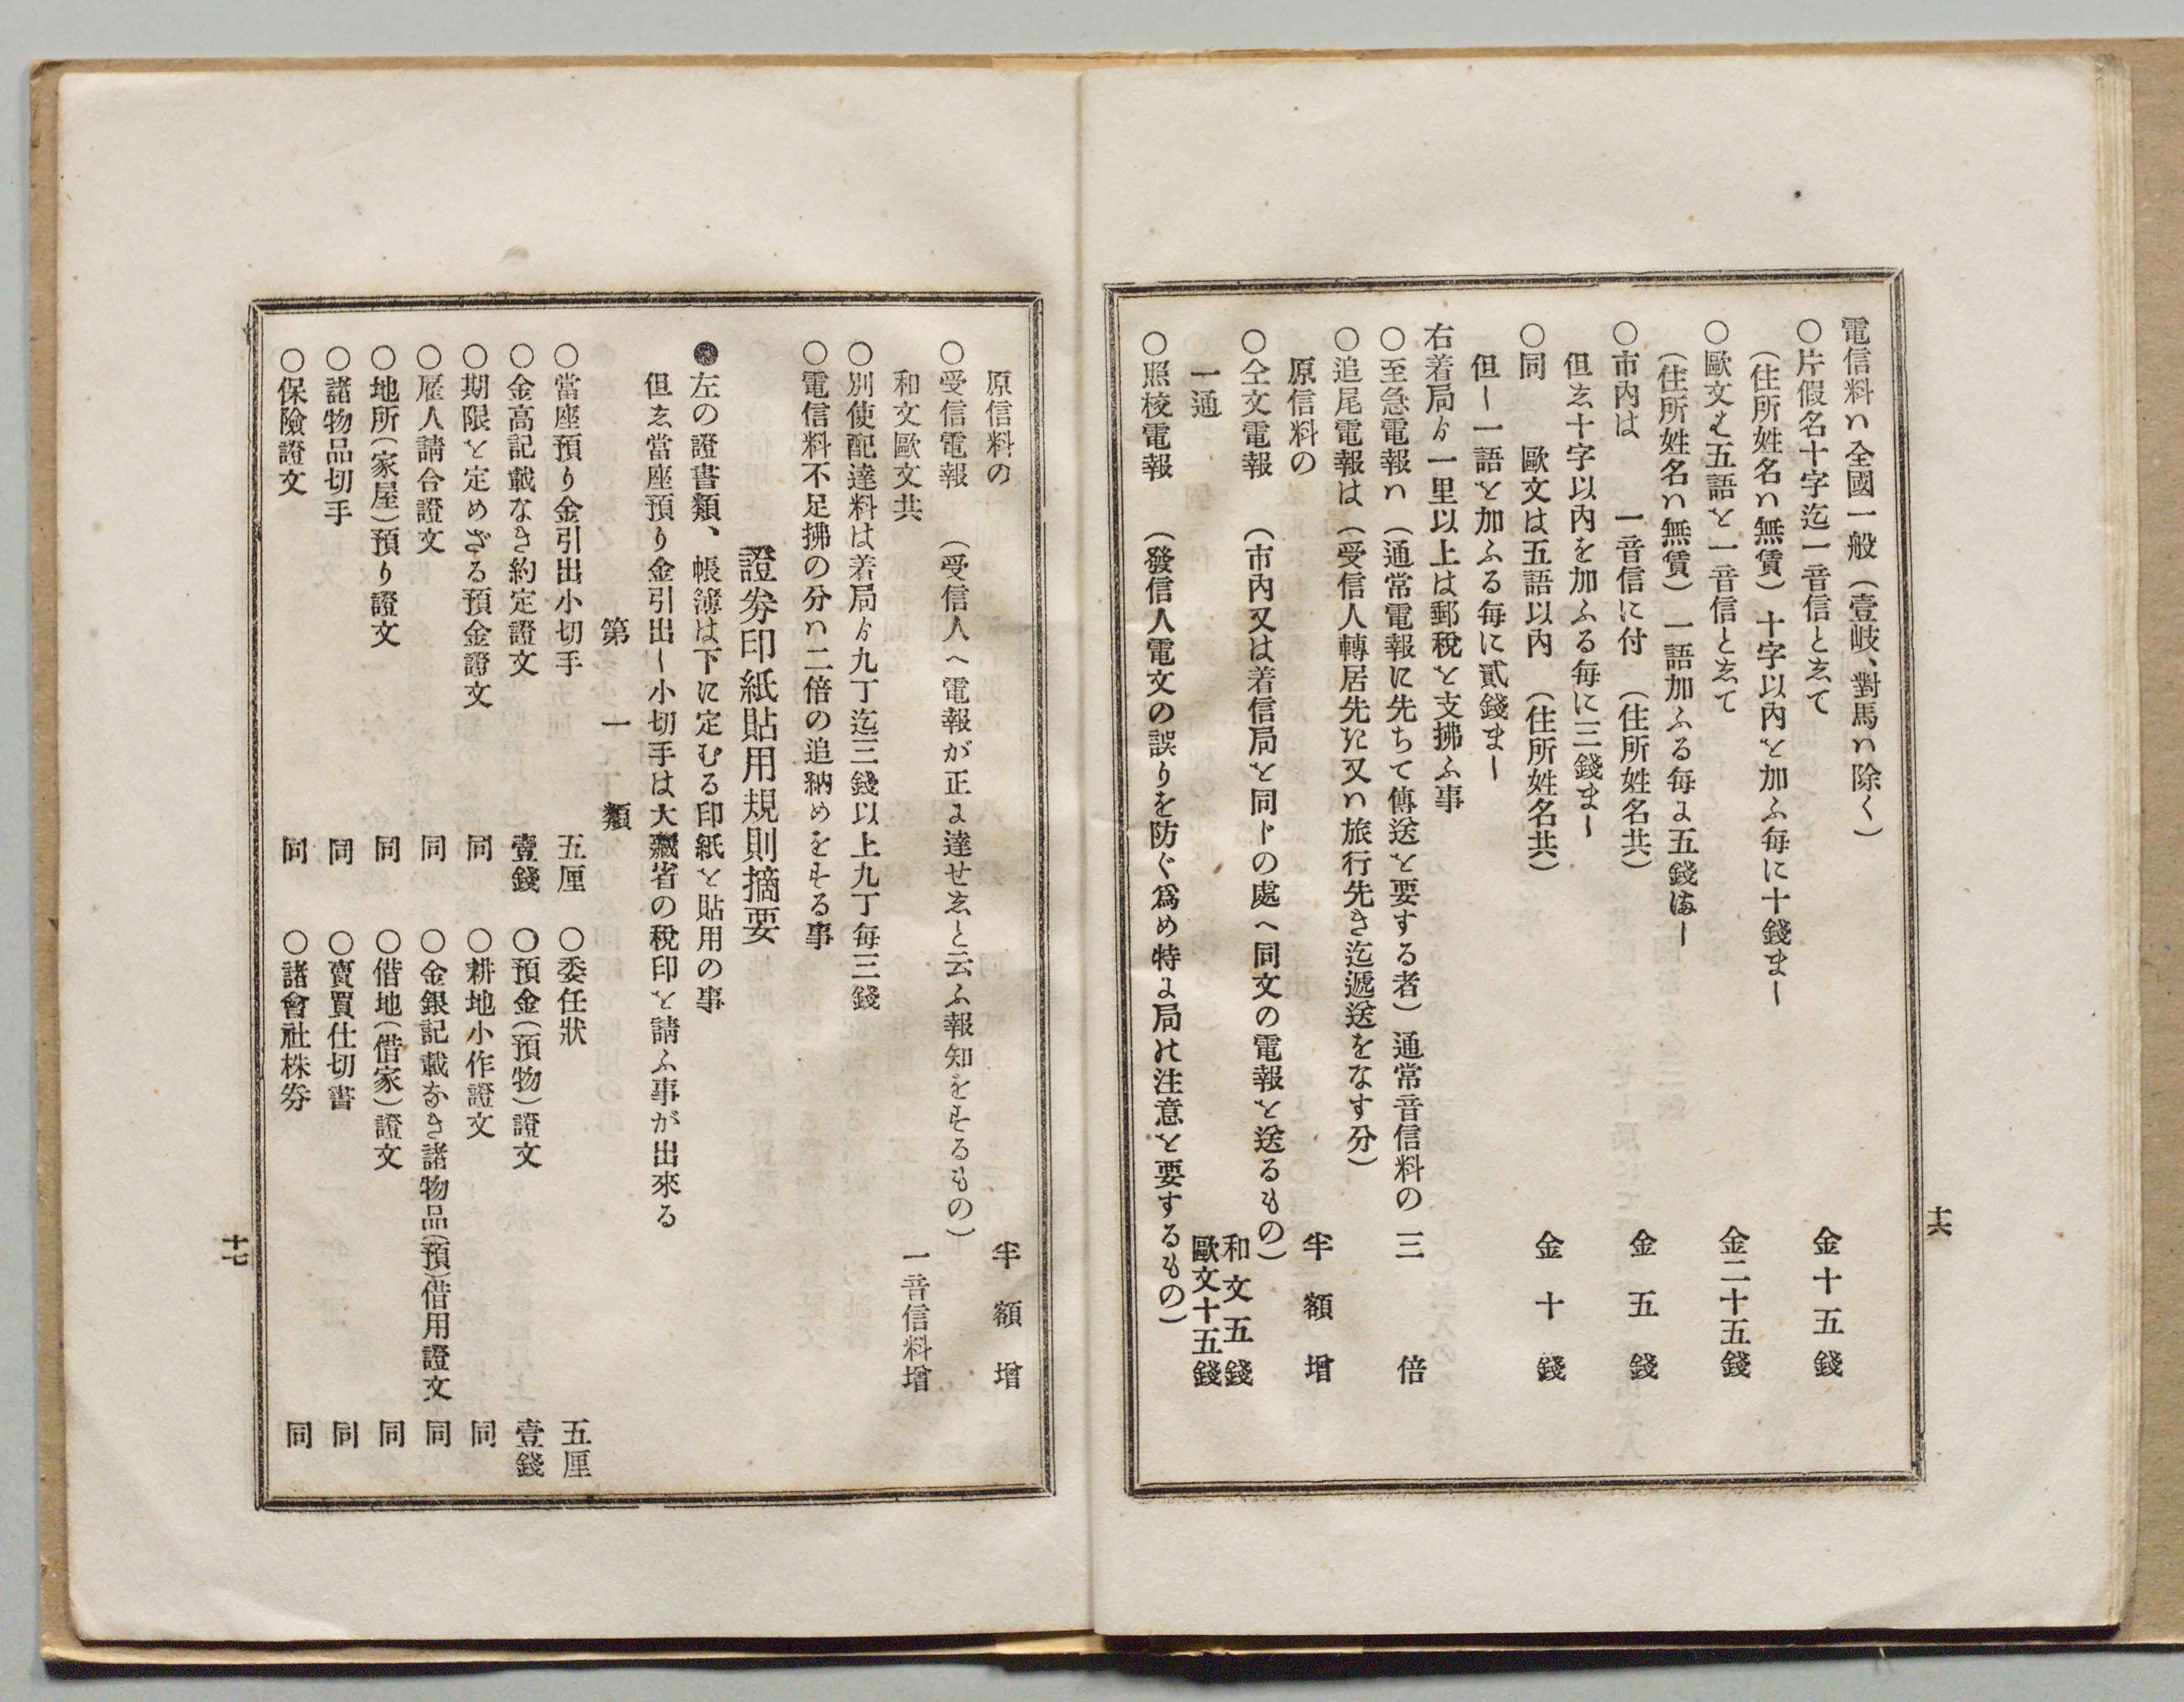 電信料ハ全國一般（壹岐、對馬ハ除く）
○片假名十字迄一音信と志て　金十五錢
（住所姓名ハ無賃）十字以內を加ふ每に十錢まし
○歐文は五語を一音信と志て　金二十五錢
（住所姓名ハ無賃）一語加ふる每に五錢ましー
○市內は　一音信に付　（住所姓名共）　金五錢
但志十字以內を加ふる每に三錢まし
○同　歐文は五語以內　（住所姓名共）　金十錢
但し一語を加ふる每に貳錢まし
右着局ゟ一里以上は郵稅を支拂ふ事
○至急電報ハ（通常電報に先ちて傳送を要する者）通常音信料の　三倍
○追尾電報は（受信人轉居先た又ハ旅行先き迄遞送をなす分）
原信料の　半額增
○仝文電報　（市內又は着信局を同じの處へ同文の電報を送るもの）
一通　和文五錢　歐文十五錢
○照校電報　（發信人電文の誤りを防ぐ爲め特に局の注意を要するもの）
十六
原信料の　半額增
○受信電報　（受信人へ電報が正に達せ志と云ふ報知をするもの）
和文歐文共　一音信料增
○別使配達料は着局ゟ九丁迄三錢以上九丁每三錢
○電信料不足拂の分ハ二倍の追納めをする事
證券印紙貼用規則摘要
●左の證書類、帳簿は下に定むる印紙を貼用の事
但志當座預り金引出し小切手は大藏省の稅印を請ふ事が出來る
第一類
○當座預り金引出小切手　五厘　○委任狀　五厘
○金高記載なき約定證文　壹錢　○預金（預物）證文　壹錢
○期限を定めざる預金證文　同　○耕地小作證文　同
○雇人請合證文　同　○金銀記載なき諸物品（預）借用證文　同
○地所（家屋）預り證文　同　○借地（借家）證文　同
○諸物品切手　同　○賣買仕切書　同
○保險證文　同　○諸會社株券　同
十七